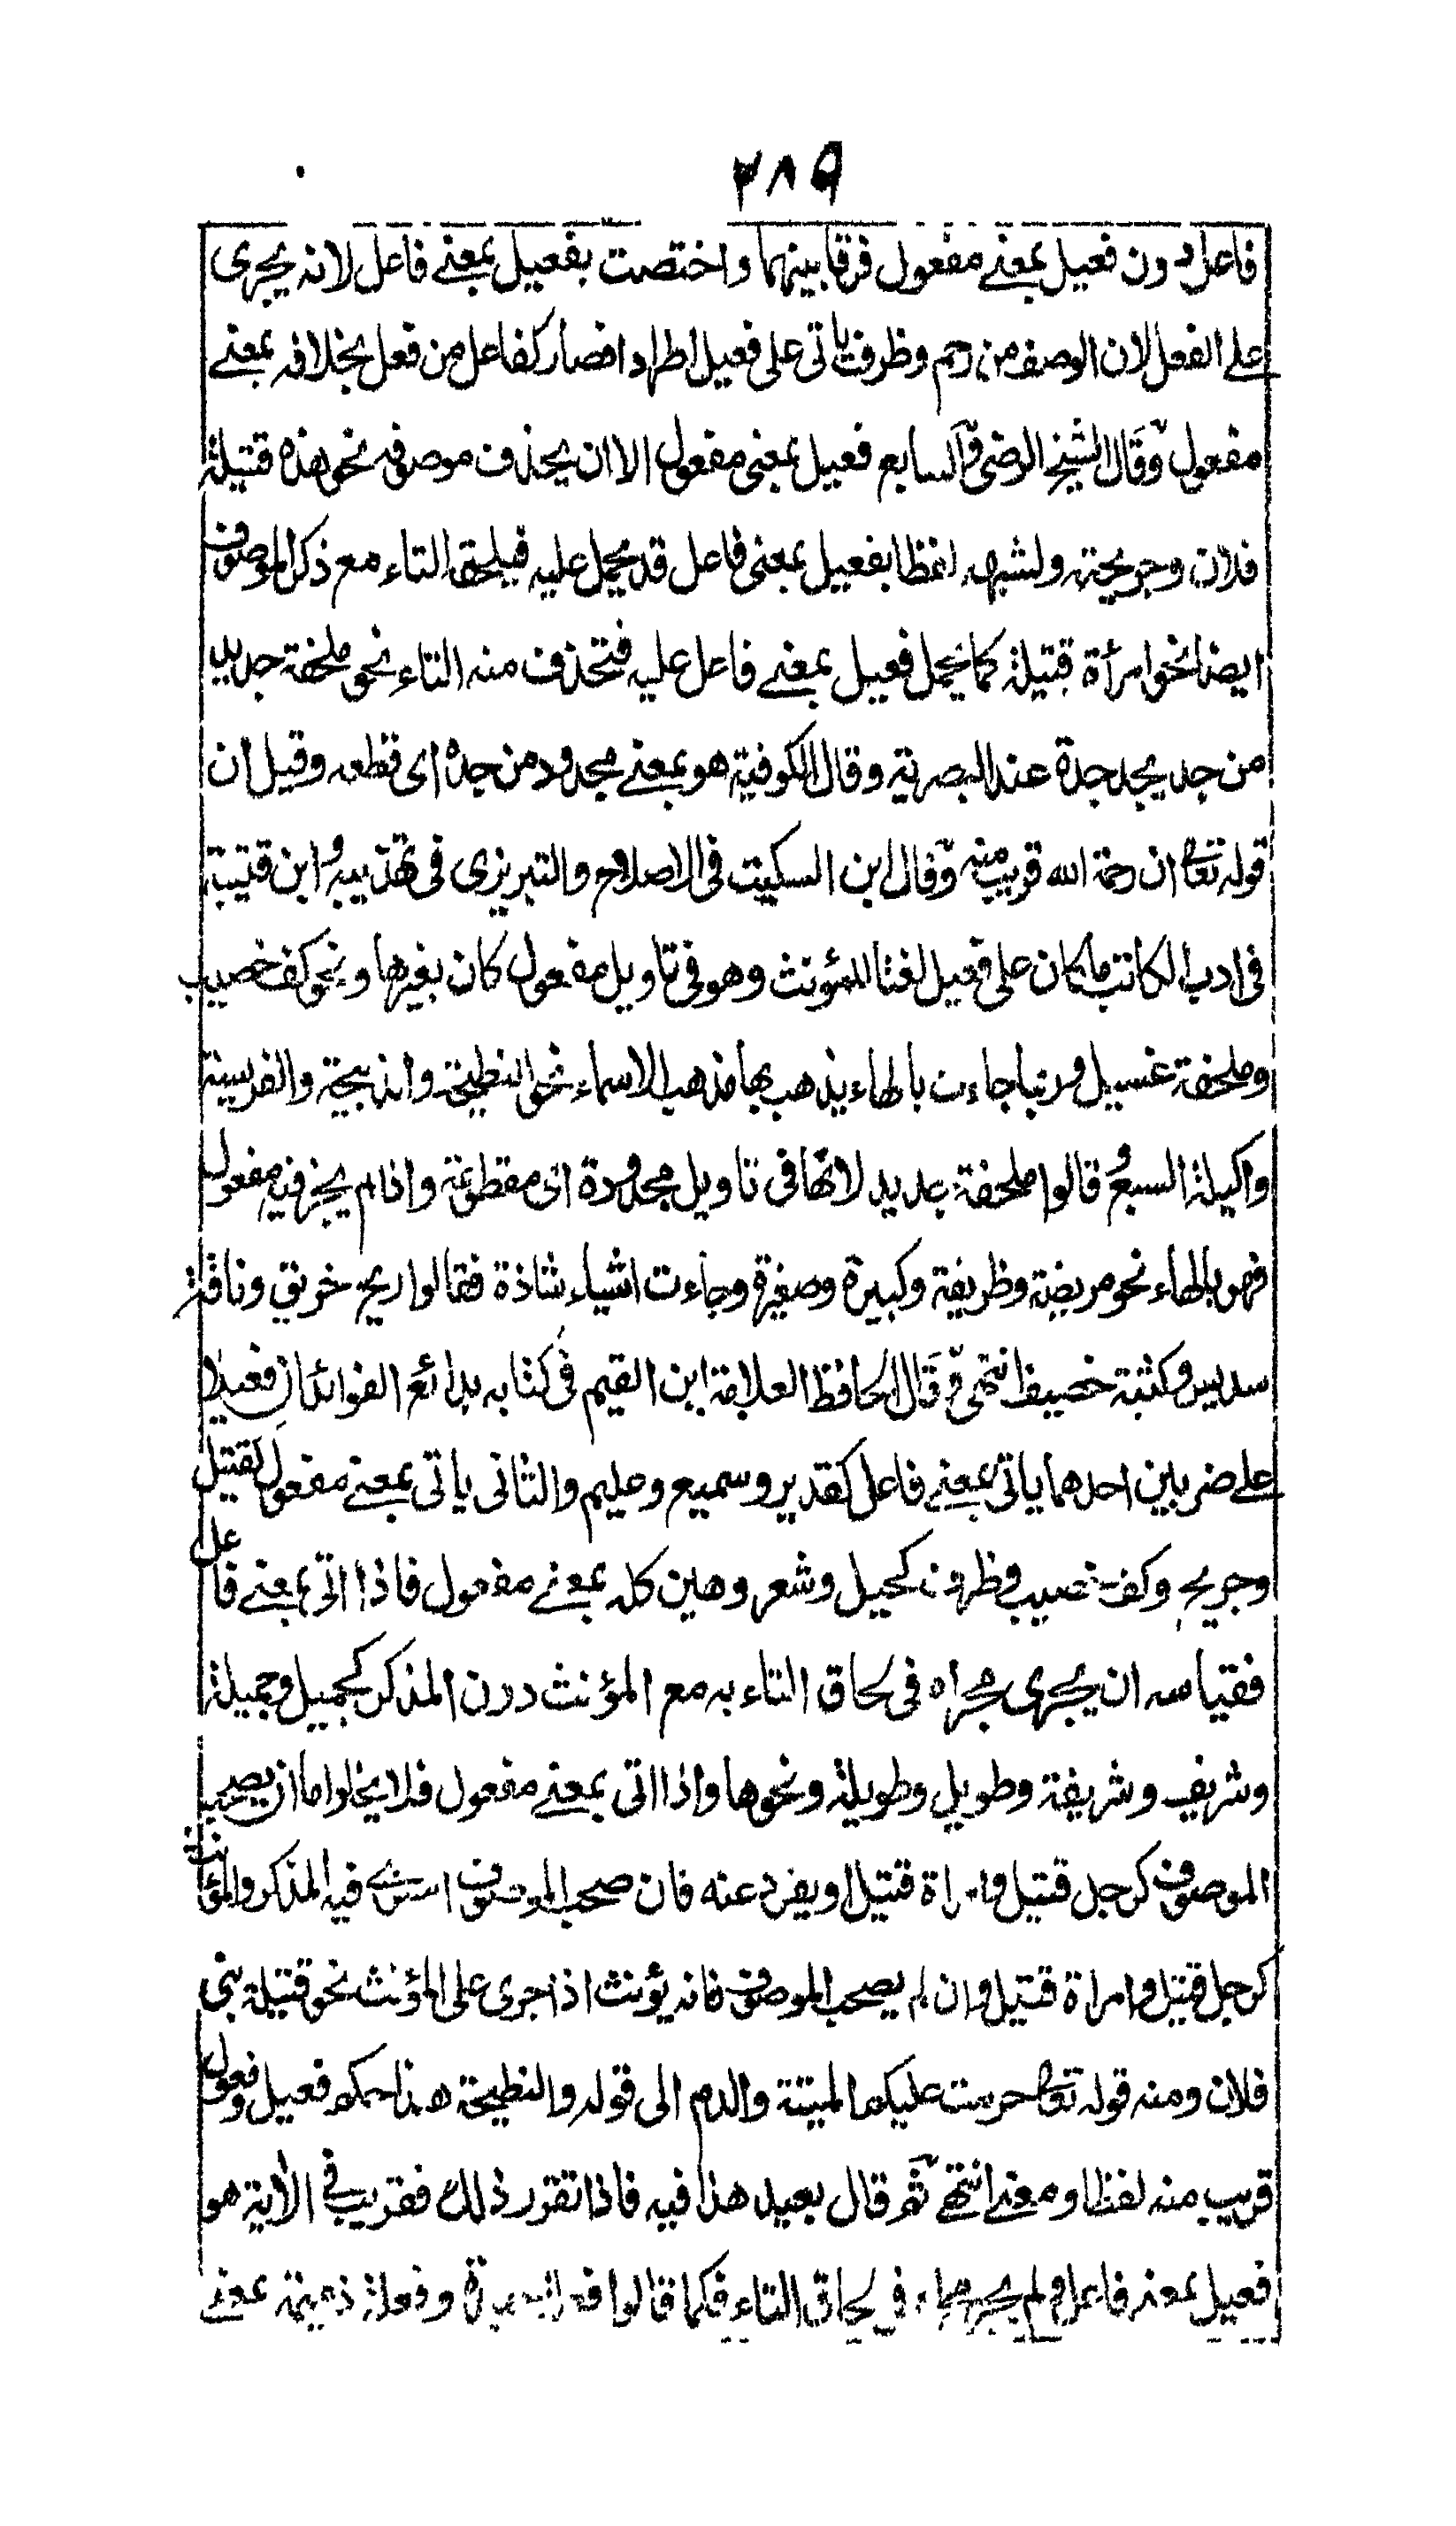 ٢٨٩
فاعل دون فعيل بمعنے مفعول فرقا بينهما واختصت بفعيل بمعنے فاعل لانه يجرى
علے الفعل لان الوصف من رحم وظرف ياتى على فعيل اطرادا فصار كفاعل من فعل بخلافه بمعنے
مفعول وقال الشيخ الرضى والسابع فعيل بمعنى مفعول الا ان يحذف موصوفه نحو هذه قتيلة
فلان وجريحته ولشبهه لفظا بفعيل بمعنى فاعل قد يحمل عليه فيلحقه التاء مع ذكر الموصوف
ايضا نحو امرأة قتيلة كما يحمل فعيل بمعنے فاعل عليه فتحذف منه التاء نحو ملحفة جديد
من جد يجد جدة عند البصرية وقال الكوفية هو بمعنے مجدود من جده اى قطعه وقيل ان
قوله تعا ان رحمة الله قريب منه وقال ابن السكيت فى الاصلاح والتبريزى فى تهذيبه وابن قتيبة
فى ادب الكاتب ما كان على فعيل نعتا للمؤنث وهو فى تاويل مفعول كان بغيرها ونحو كف خصيب
وملحفة غسيل وربما جاءت بالهاء يذهب بها مذهب الاسماء نحو النطيحة والذبيحة والفريسة
واكيلة السبع وقالوا ملحفة جديد لانها فى تاويل مجدودة اى مقطوعة واذا لم يجز فيه مفعول
فهو بالهاء نحو مريضة وظريفة وكبيرة وصغيرة وجاءت اشياء شاذة فقالوا ريح خريق وناقة
سديس وكتيبة خصيف انتهى وقال الحافظ العلامة ابن القيم فى كتابه بدائع الفوائد ان فعيلا
علے ضربين احدهما ياتى بمعنے فاعل كقدير وسميع وعليم والثانى ياتى بمعنے مفعول كقتيل
وجريح وكف خصيب وطرف كحيل وشعر دهين كله بمعنے مفعول فاذا اتى بمعنے فاعل
فقياسه ان يجرى مجراه فى لحاق التاء به مع المؤنث دون المذكر كجميل وجميلة
وشريف وشريفة وطويل وطويلة ونحوها واذا اتى بمعنے مفعول فلا يخلوا ما ان يصحب
الموصوف كرجل قتيل وامراة قتيل او يفرد عنه فان صحب الموصوف استوى فيه المذكر والمؤنث
كرجل قتيل وامراة قتيل وان لم يصحب الموصوف فانه يؤنث اذا جرى على المؤنث نحو قتيلة بنى
فلان ومنه قوله تعا حرمت عليكم الميتة والدم الى قوله والنطيحة هذا حكم فعيل وفعول
قريب منه لفظا ومعنے انتهے ثم قال بعيد هذا فيه فاذا تقرر ذلك فقريب فى الآية هو
فعيل بمعنے فاعل ولم يجر مجراه فى لحاق التاء فكما قالوا خصلة حميدة وفعلة ذميمة بمعنے